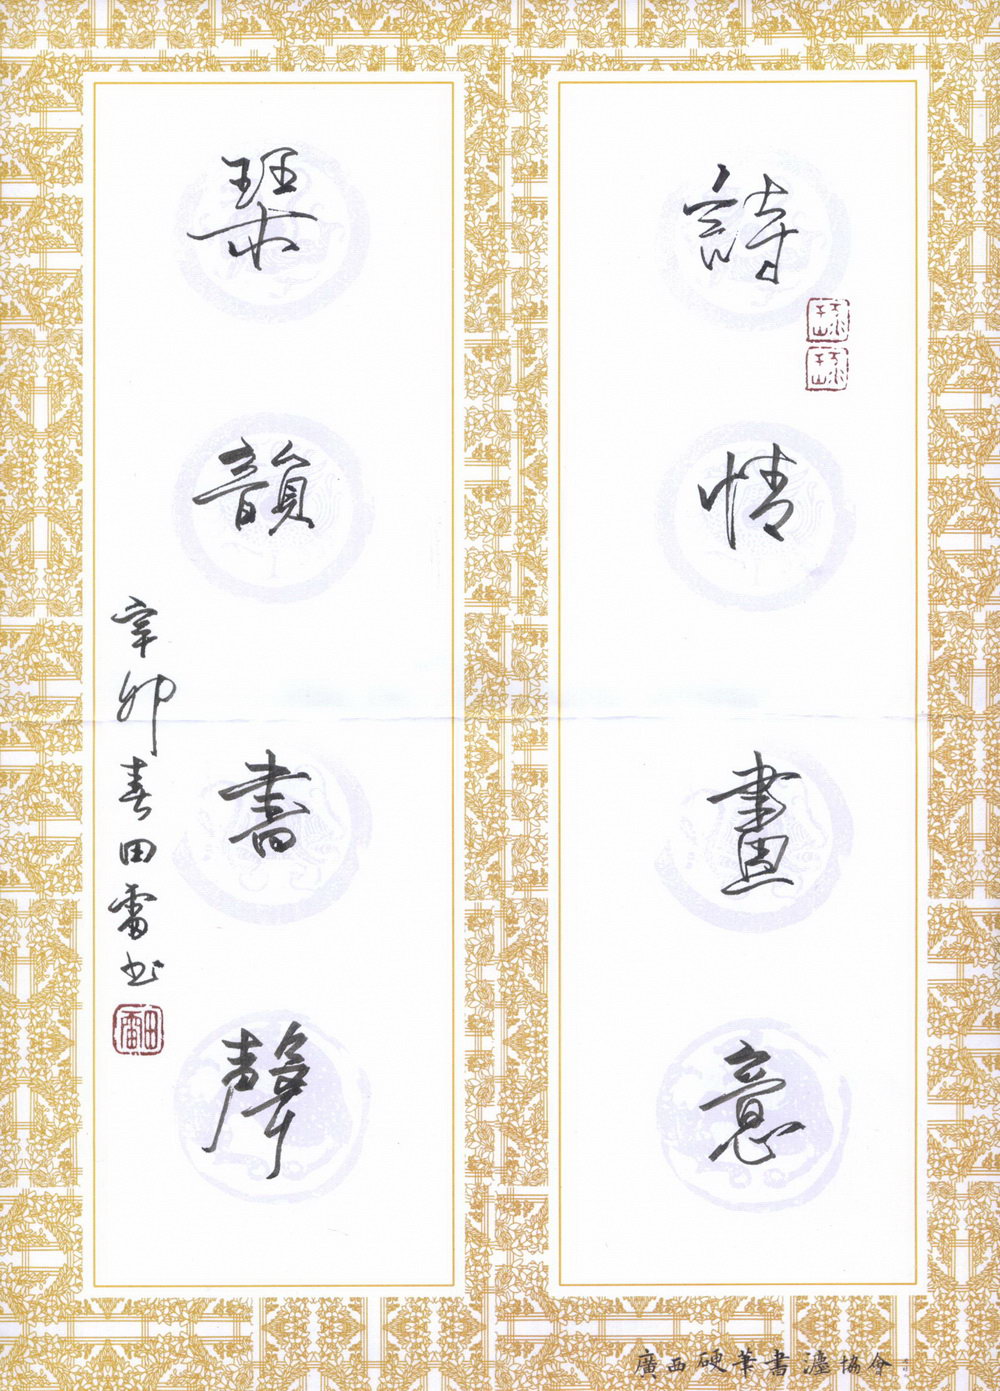 詩情畫意
琴韻書聲
辛卯春田雷书
田雷
廣西硬筆書灋協會